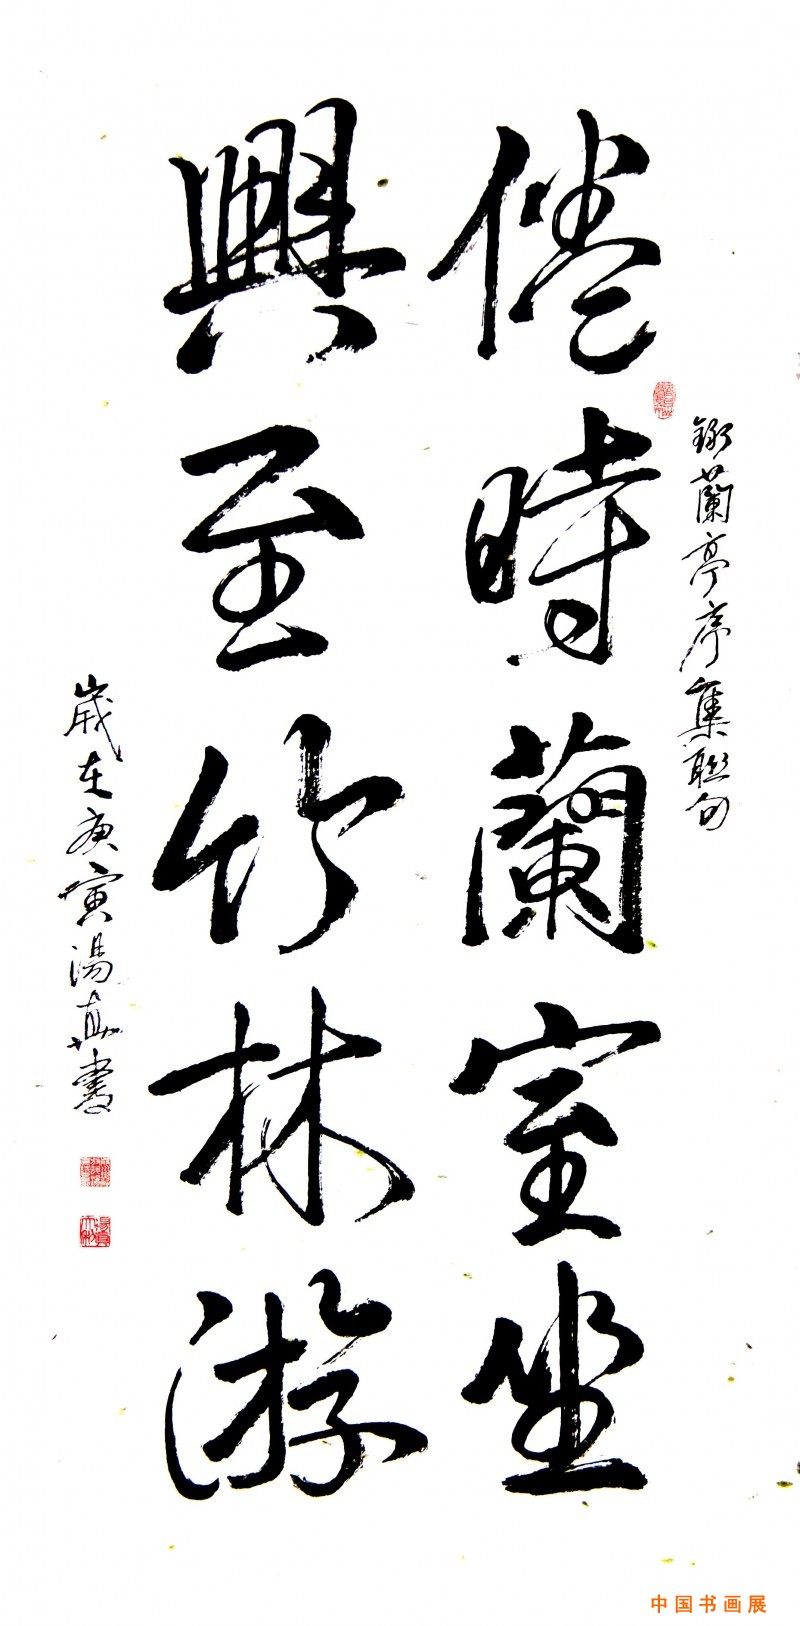 錄蘭亭序集聯句
倦時蘭室坐
興至竹林游
歲在庚寅湯真書
中国书画展